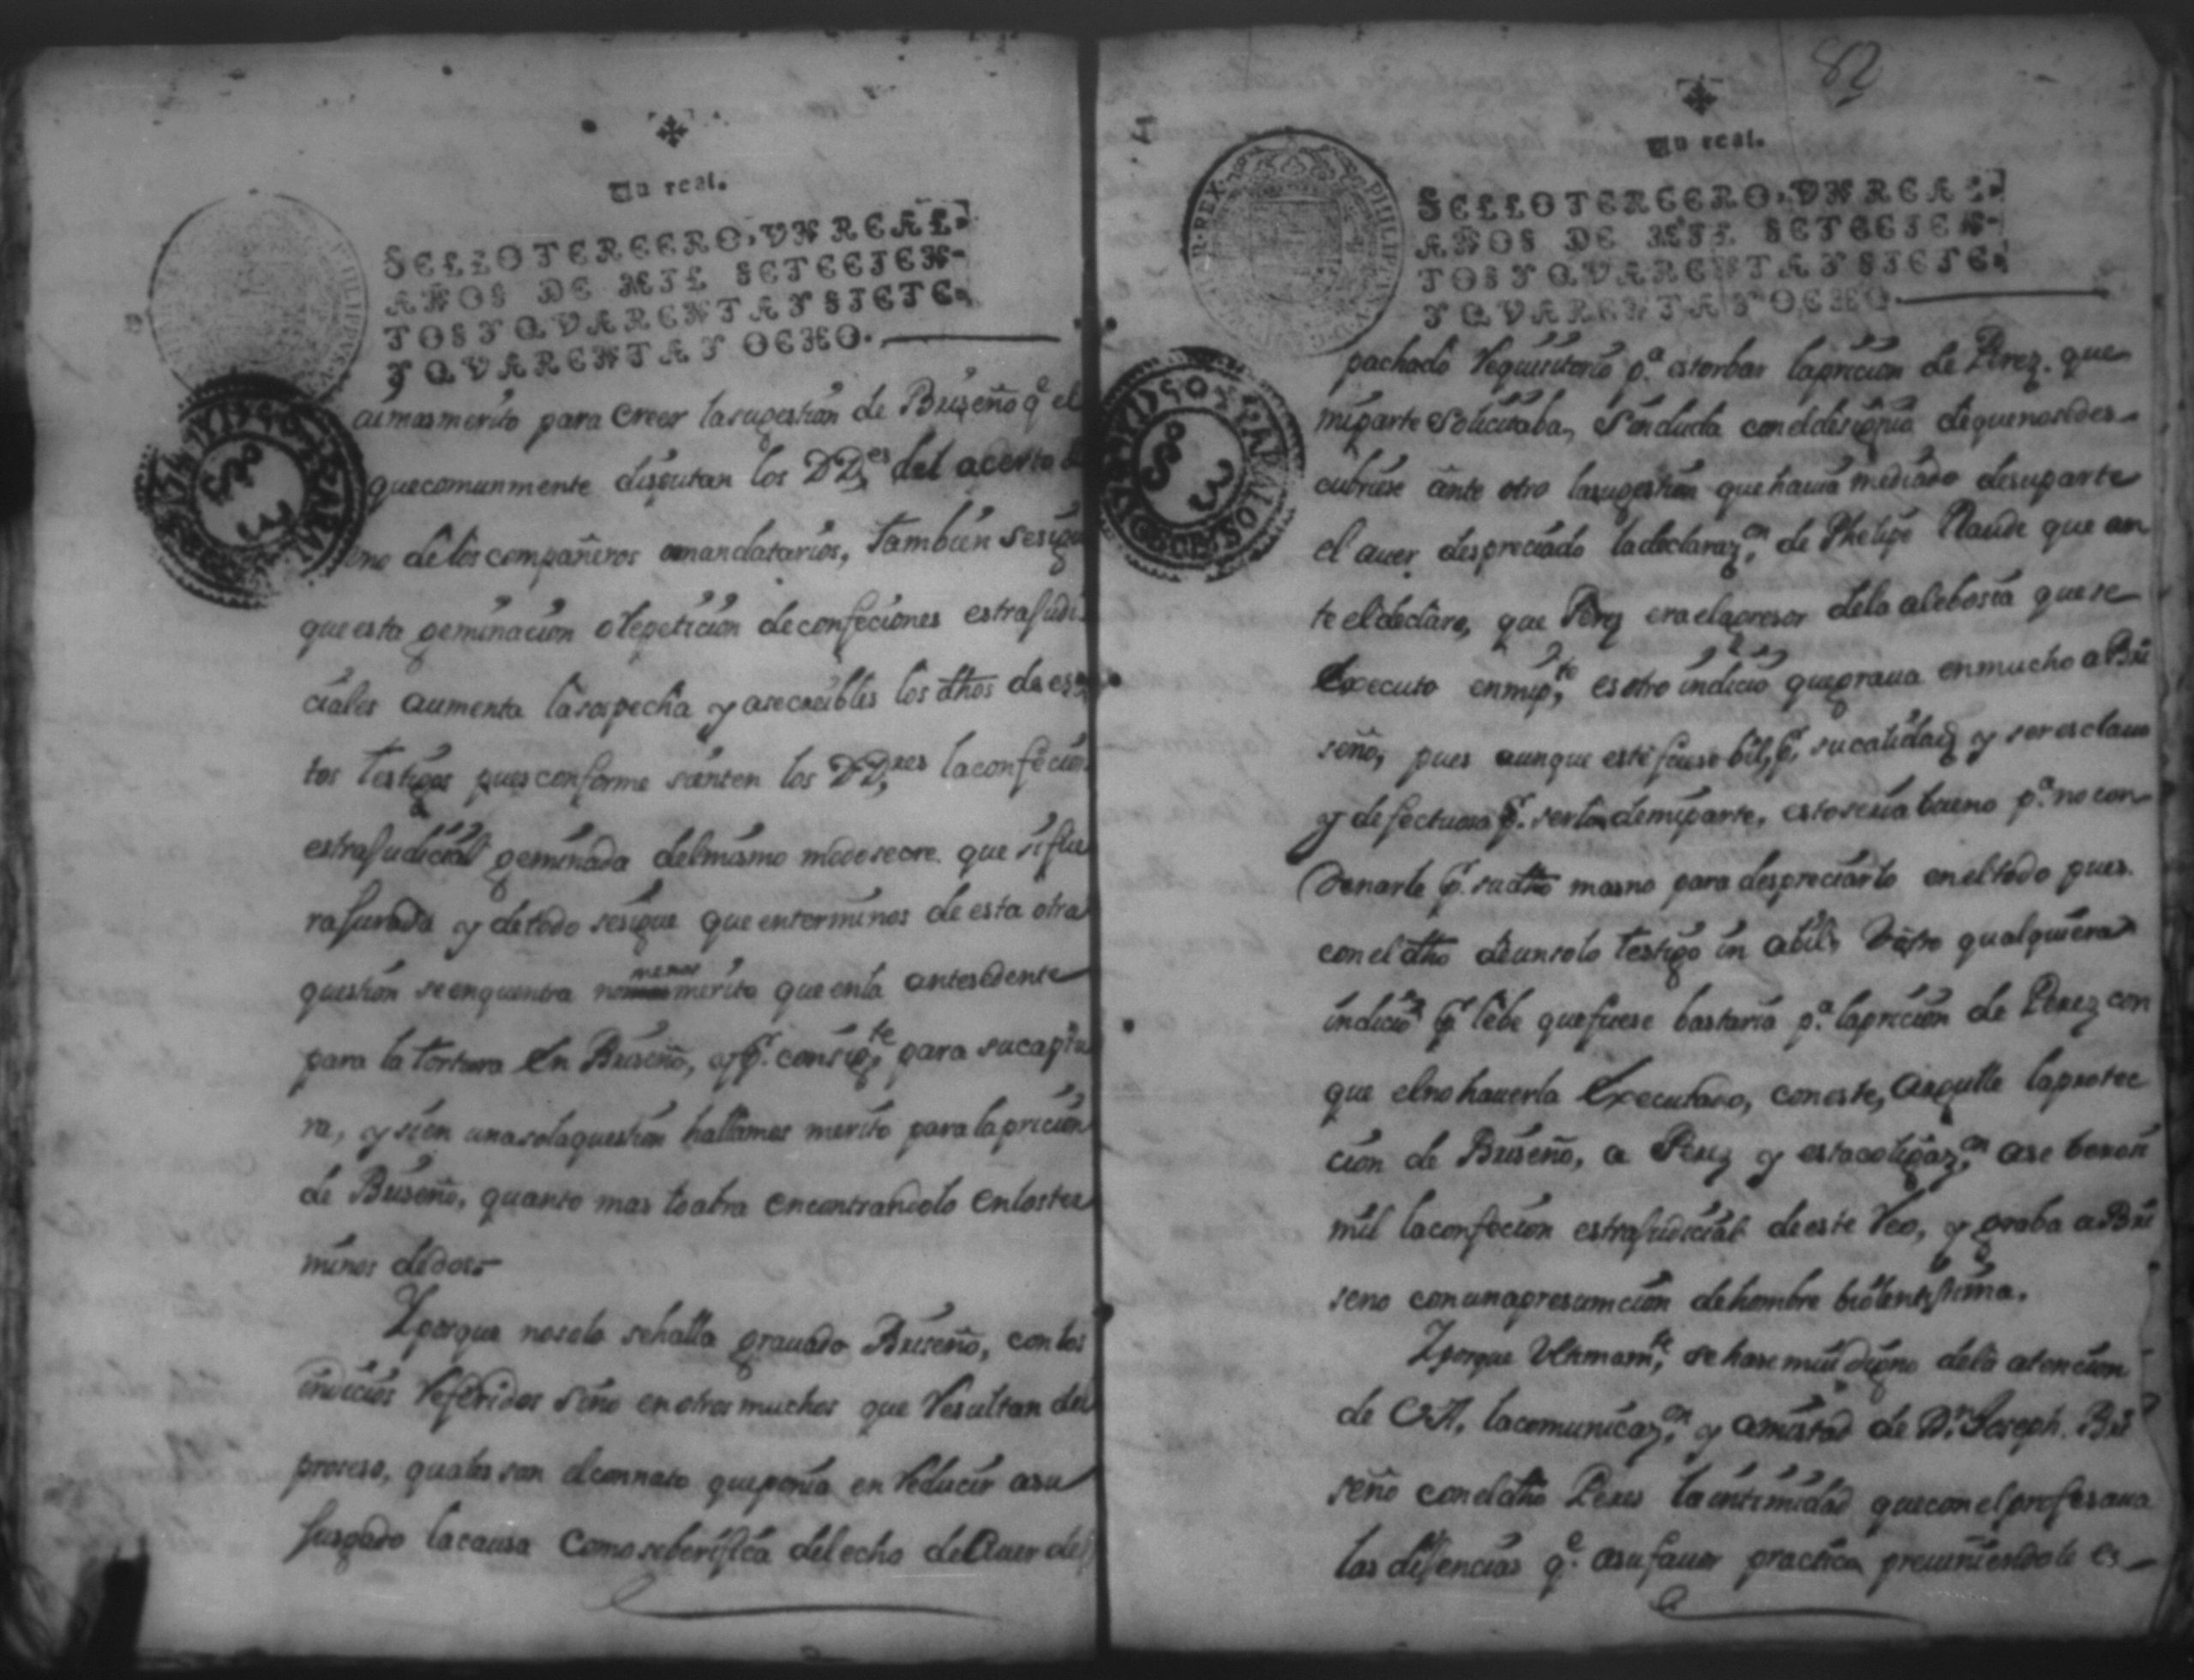 Un real.
SELLO TERCERO, VN REAL,
AÑOS DE MIL SETECIEN-
TOS Y QVARENTA Y SIETE,
Y QVARENTA Y OCHO.
ai mas merito para creer la sugestion de Briseño q.e el
que comunmente disputan los DD.es del acerto de
uno de los compañeros o mandatarios, tambien se sigue
que esta geminacion o repeticion de confeciones estrajudi-
ciales aumenta la sospecha y ase creibles los dhos de es
tos testigos pues conforme sienten los DD.res la confecion
estrajudicial geminada del mismo modo se cre que si fue
ra jurada y de todo se sigue que en terminos de esta otra
question se enquentra no menos merito que en la antesedente
para la tortura en Briseño, y p.r consig.te para su captu
ra, y si en una sola question hallamos merito para la pricion
de Briseño, quanto mas lo abra encontrandolo en los ter
minos de dos.
Y porque no solo se halla grauado Briseño, con los
indicios referidos sino en otros muchos que resultan del
proceso, quales son el connato que ponia en reducir a su
jusgado la causa como se berifica del echo de auer des
82
Un real.
SELLO TERCERO, VN REAL,
AÑOS DE MIL SETECIEN-
TOS Y QVARENTA Y SIETE,
Y QVARENTA Y OCHO.
pachado requisitorio p.a estorbar la pricion de Perez. que
mi parte solicitaba, sin duda con el designio de que no se des-
cubriese ante otro la sugestion que hauia mediado de su parte
el auer despreciado la declaraz.on de Phelipe Claude que an
te el declaro, que Perez era el agresor de la alebosia que se
executo en mi p.te es otro indicio que graua en mucho a Bri
seño, pues aunque este fuese bil, p.r su calidad y ser esclauo
y defectuoso p.r serlo de mi parte, esto seria bueno p.a no con-
denarle p.r su dho mas no para despreciarlo en el todo pues
con el dho de un solo testigo in abil, u otro qualquiera
indicio p.r lebe que fuese bastaria p.a la pricion de Perez con
que el no hauerla executado, con este, argulle la protec
cion de Briseño, a Perez y esta coligaz.on ase berosi
mil la confecion estrajudicial de este reo, y graba a Bri
seño con una presumcion de hombre biolentisima.
Y porque vltimam.te se hase mui digno de la atencion
de V.A, la comunicaz.on y amistad de D.n Joseph Bri
seño con el dho Peres la intimidad que con el profesaua
las dilijencias q.e a su fauor practica preuiniendole es-